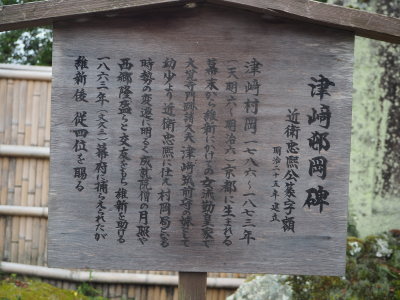 津崎邨岡碑
近衛忠熙公篆字額
明治二十五年建立
津崎村岡 一七八六〜一八七三年
(天明六〜明治六)京都に生まれる
幕末から維新にかけての女流勤皇家で
大覚寺門跡諸大夫津崎筑前守の妹として
幼少より近衛忠熙に仕え村岡局となる
時勢の変遷に明るく成就院僧の月照や
西郷隆盛らと交友をもち維新を助ける
一八六三年(文久三)幕府に捕らえられたが
維新後 従四位を賜る